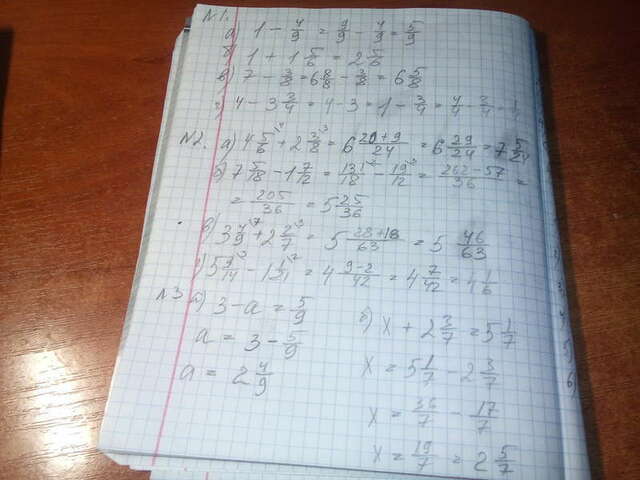 №1.
а) 1 - 4/9 = 9/9 - 4/9 = 5/9
б) 1 + 1 5/6 = 2 5/6
в) 7 - 3/8 = 6 8/8 - 3/8 = 6 5/8
г) 4 - 3 3/4 = 4 - 3 = 1 - 3/4 = 4/4 - 3/4 = 1/4
№2. а) 4 5/6 + 2 3/8 = 6 20+9/24 = 6 29/24 = 7 5/24
б) 7 5/18 - 1 7/12 = 131/18 - 19/12 = 262-57/36 =
= 205/36 = 5 25/36
в) 3 4/9 + 2 2/7 = 5 28+18/63 = 5 46/63
5 9/14 - 1 1/21 = 4 9-2/42 = 4 7/42 = 4 1/6
№3 а) 3 - a = 5/9
a = 3 - 5/9
a = 2 4/9
б) x + 2 3/7 = 5 1/7
x = 5 1/7 - 2 3/7
x = 36/7 - 17/7
x = 19/7 = 2 5/7